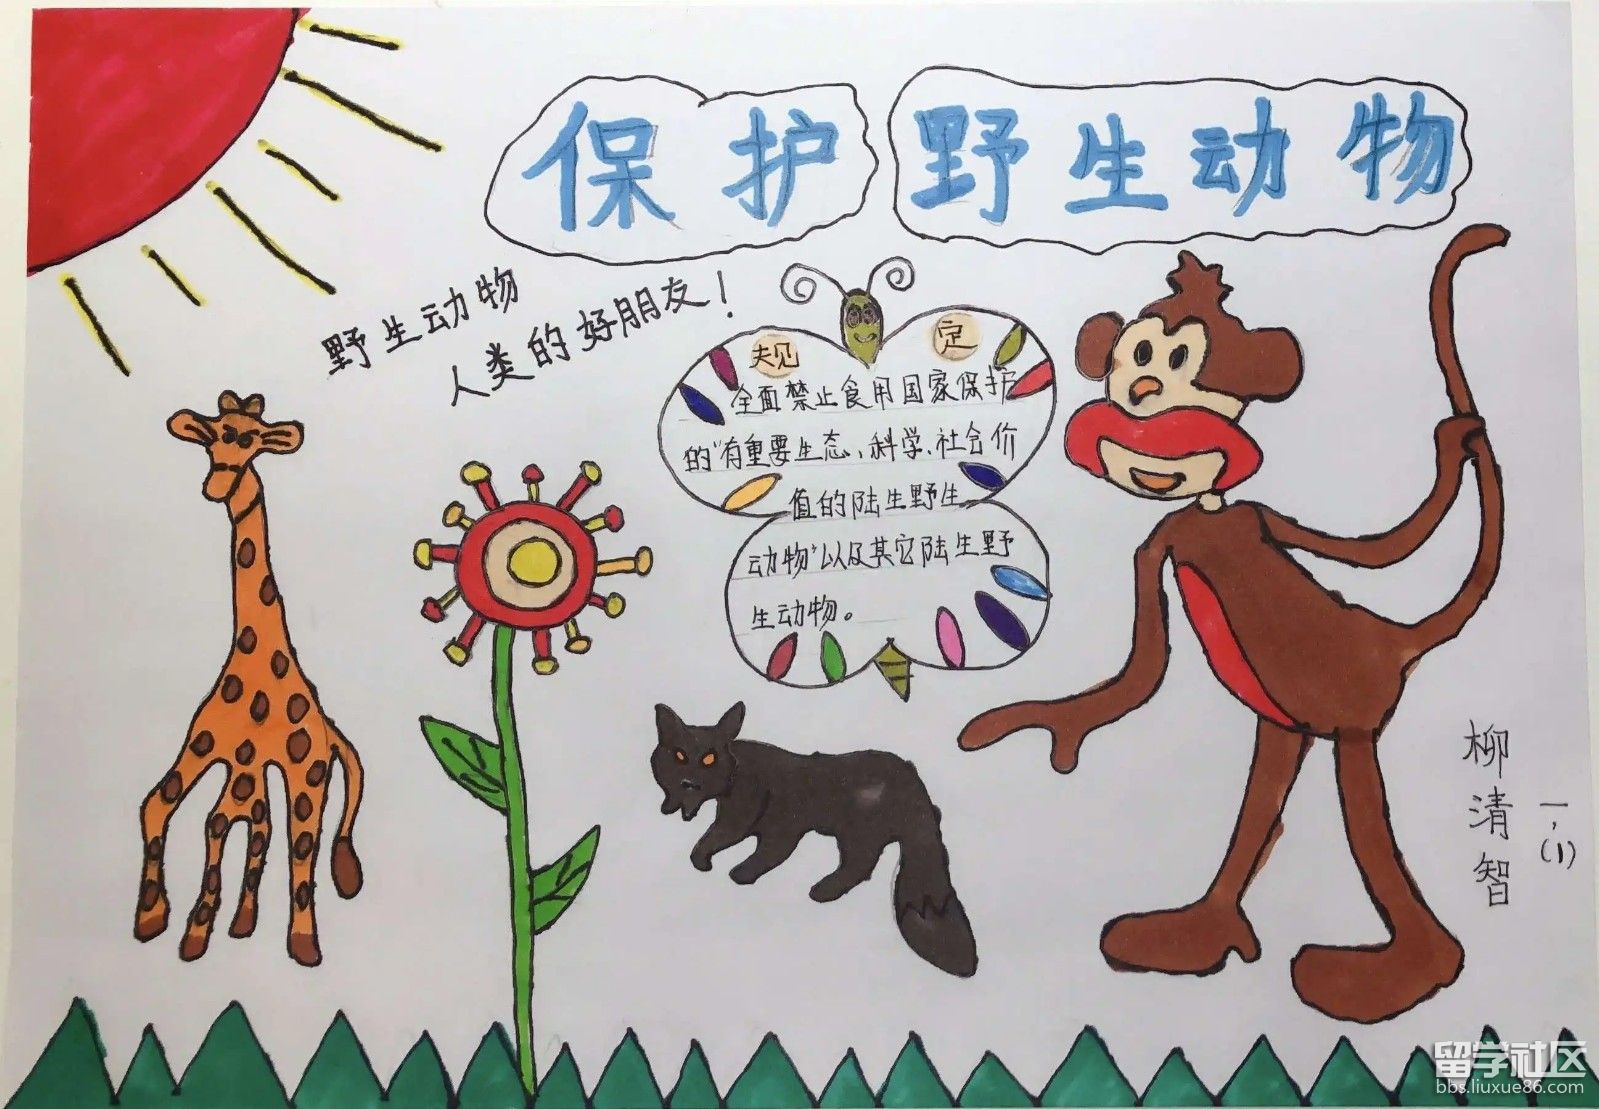 保护 野生动物
野生动物
人类的好朋友！
规 定
全面禁止食用国家保护
的“有重要生态、科学、社会价
值的陆生野生
动物”以及其它陆生野
生动物。
柳清智
一、(1)
留学社区
bbs.liuxue86.com